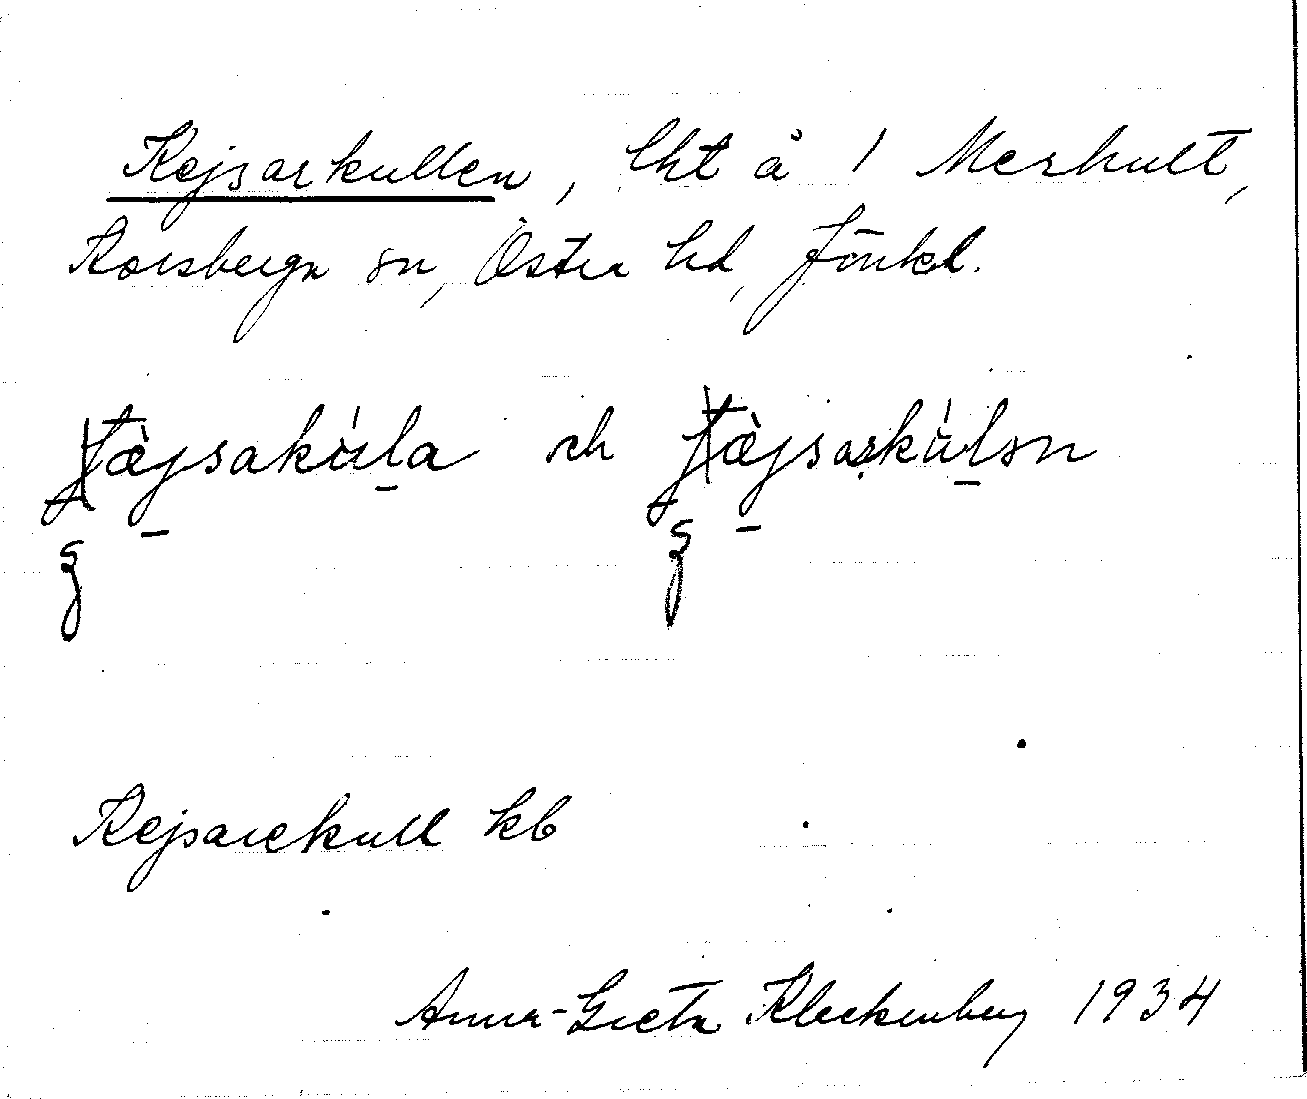 Kejsarkullen, lht å 1 Merhult,
Korsberga sn, Östra hd, Jönkl.
och
Kejsarekull kb
Anna-Greta Kleckenberg 1934